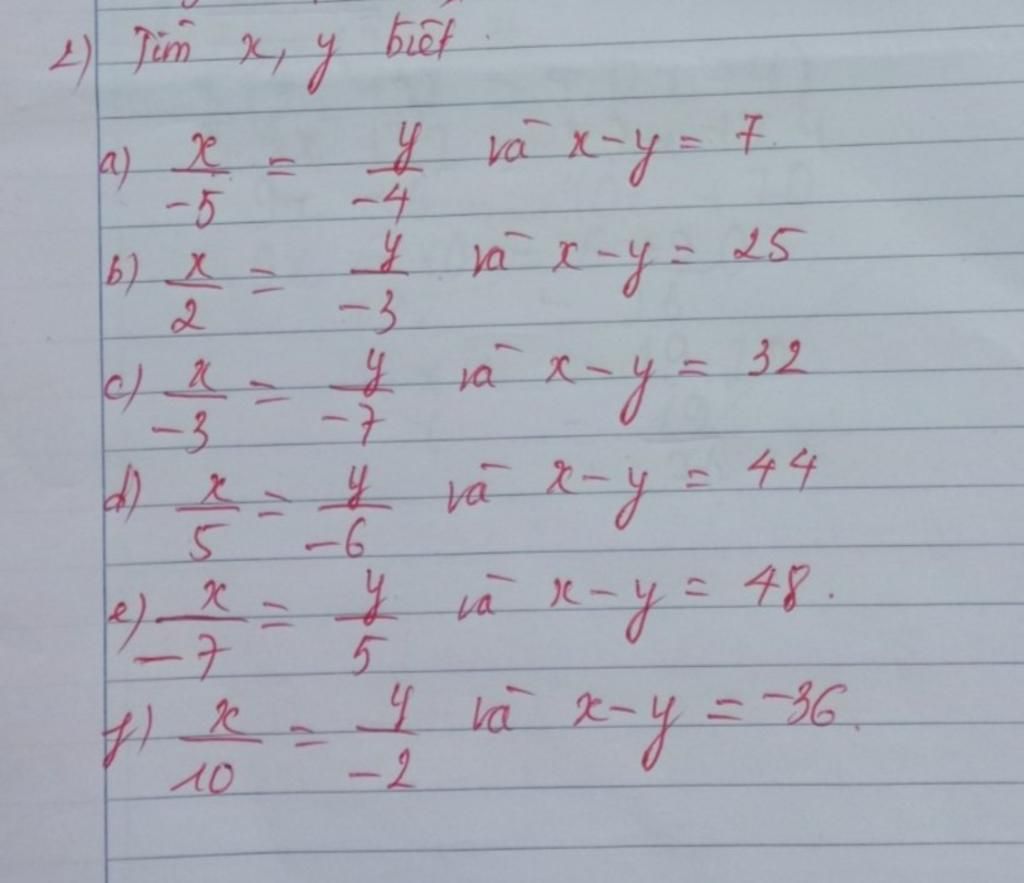 1) Tìm x, y biết.
a) x/-5 = y/-4 và x-y = 7.
b) x/2 = y/-3 và x-y = 25
c) x/-3 = y/-7 và x-y = 32
d) x/5 = y/-6 và x-y = 44
e) x/-7 = y/5 và x-y = 48.
f) x/10 = y/-2 và x-y = -36.